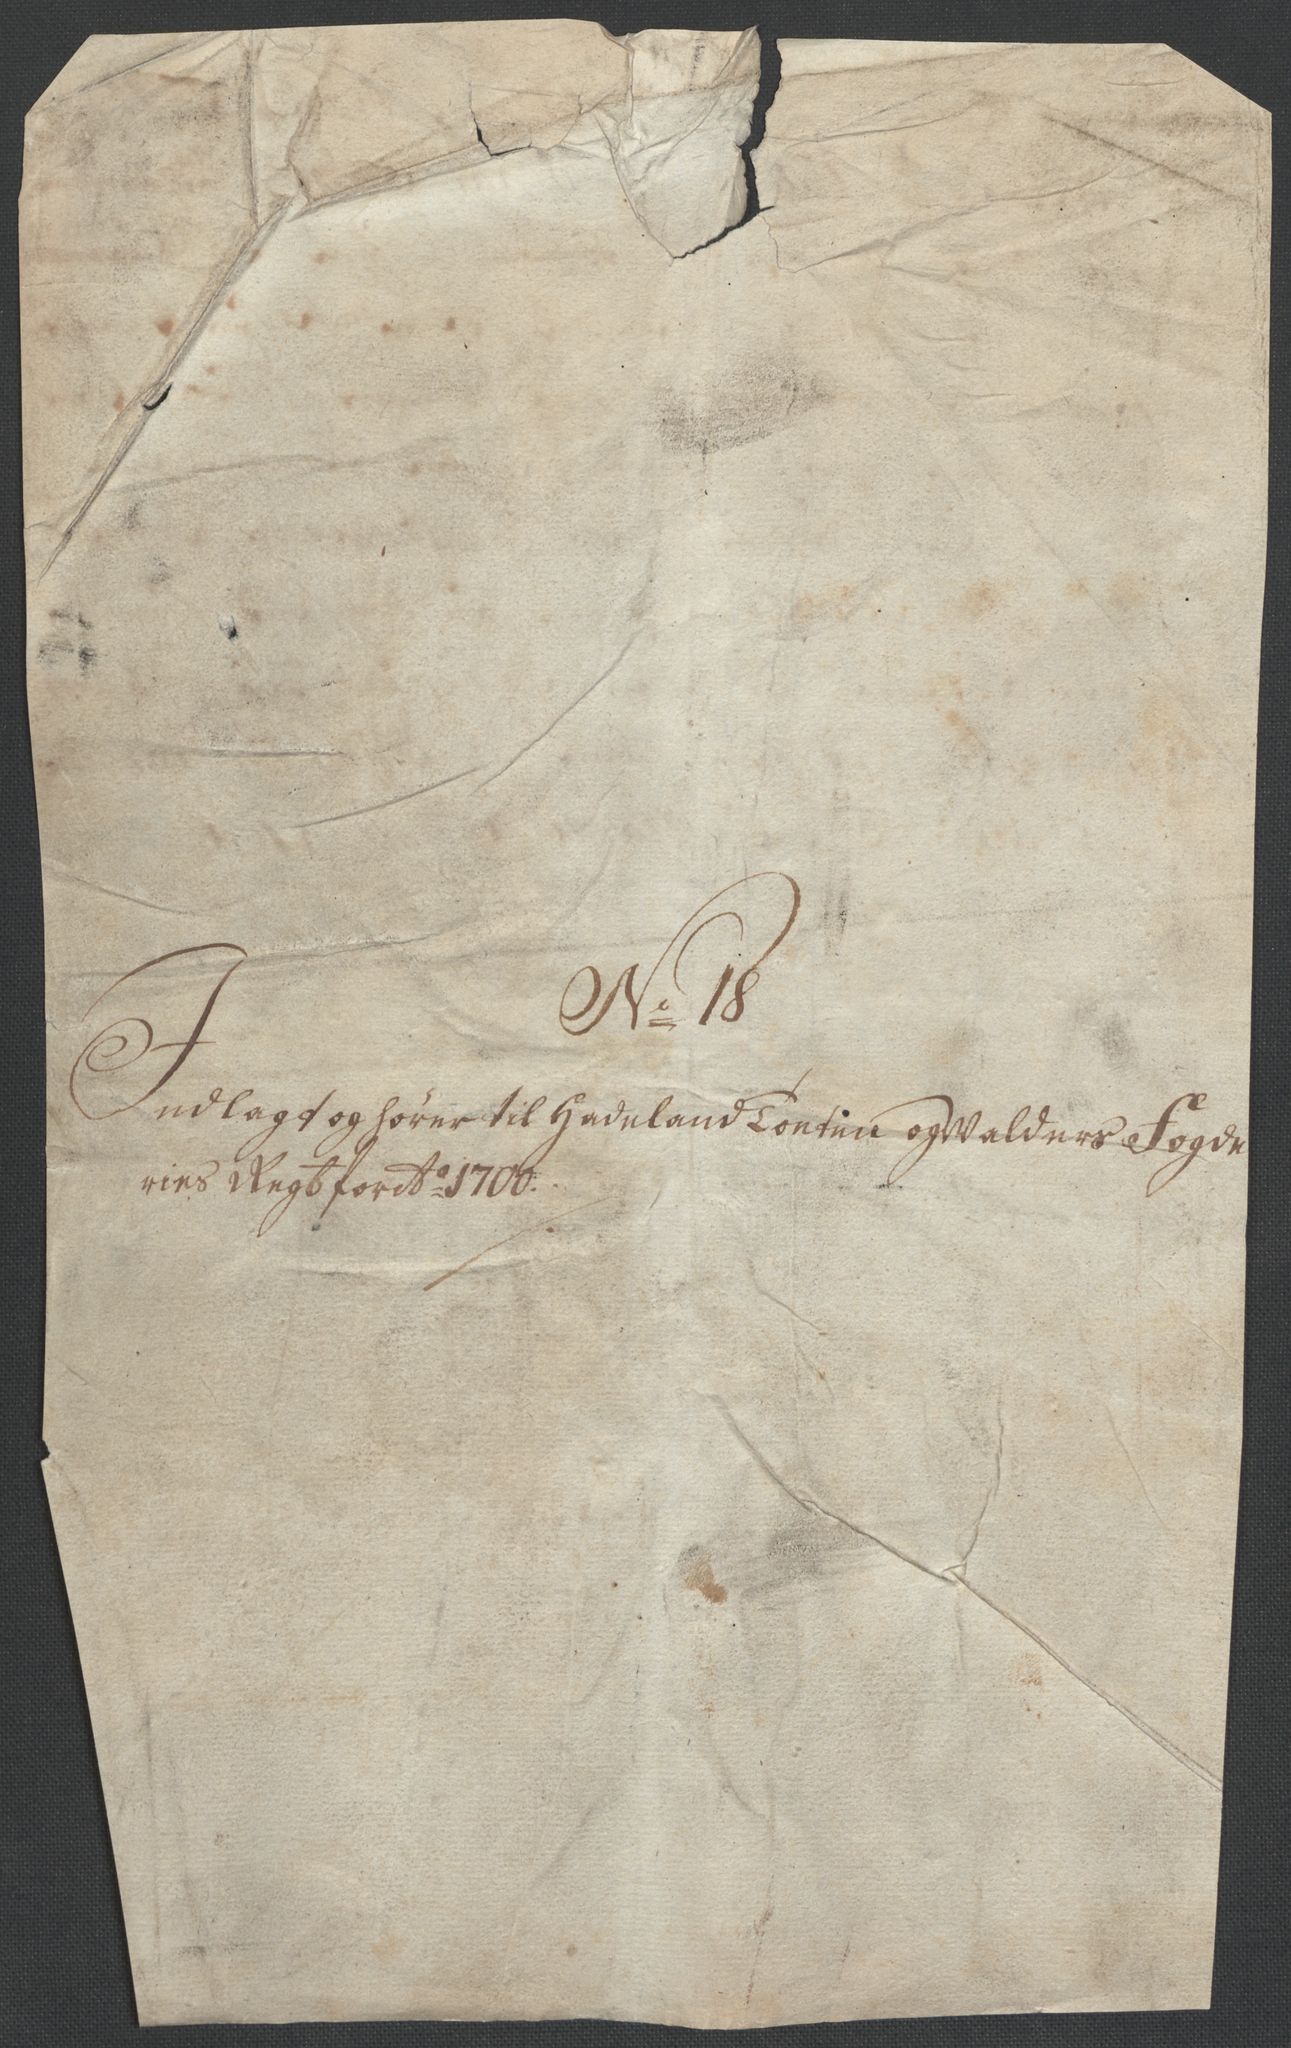 No 18
Indlagt og hører til Hadeland Tonten og Walders Fogde
ries Regsb for Ao 1700.